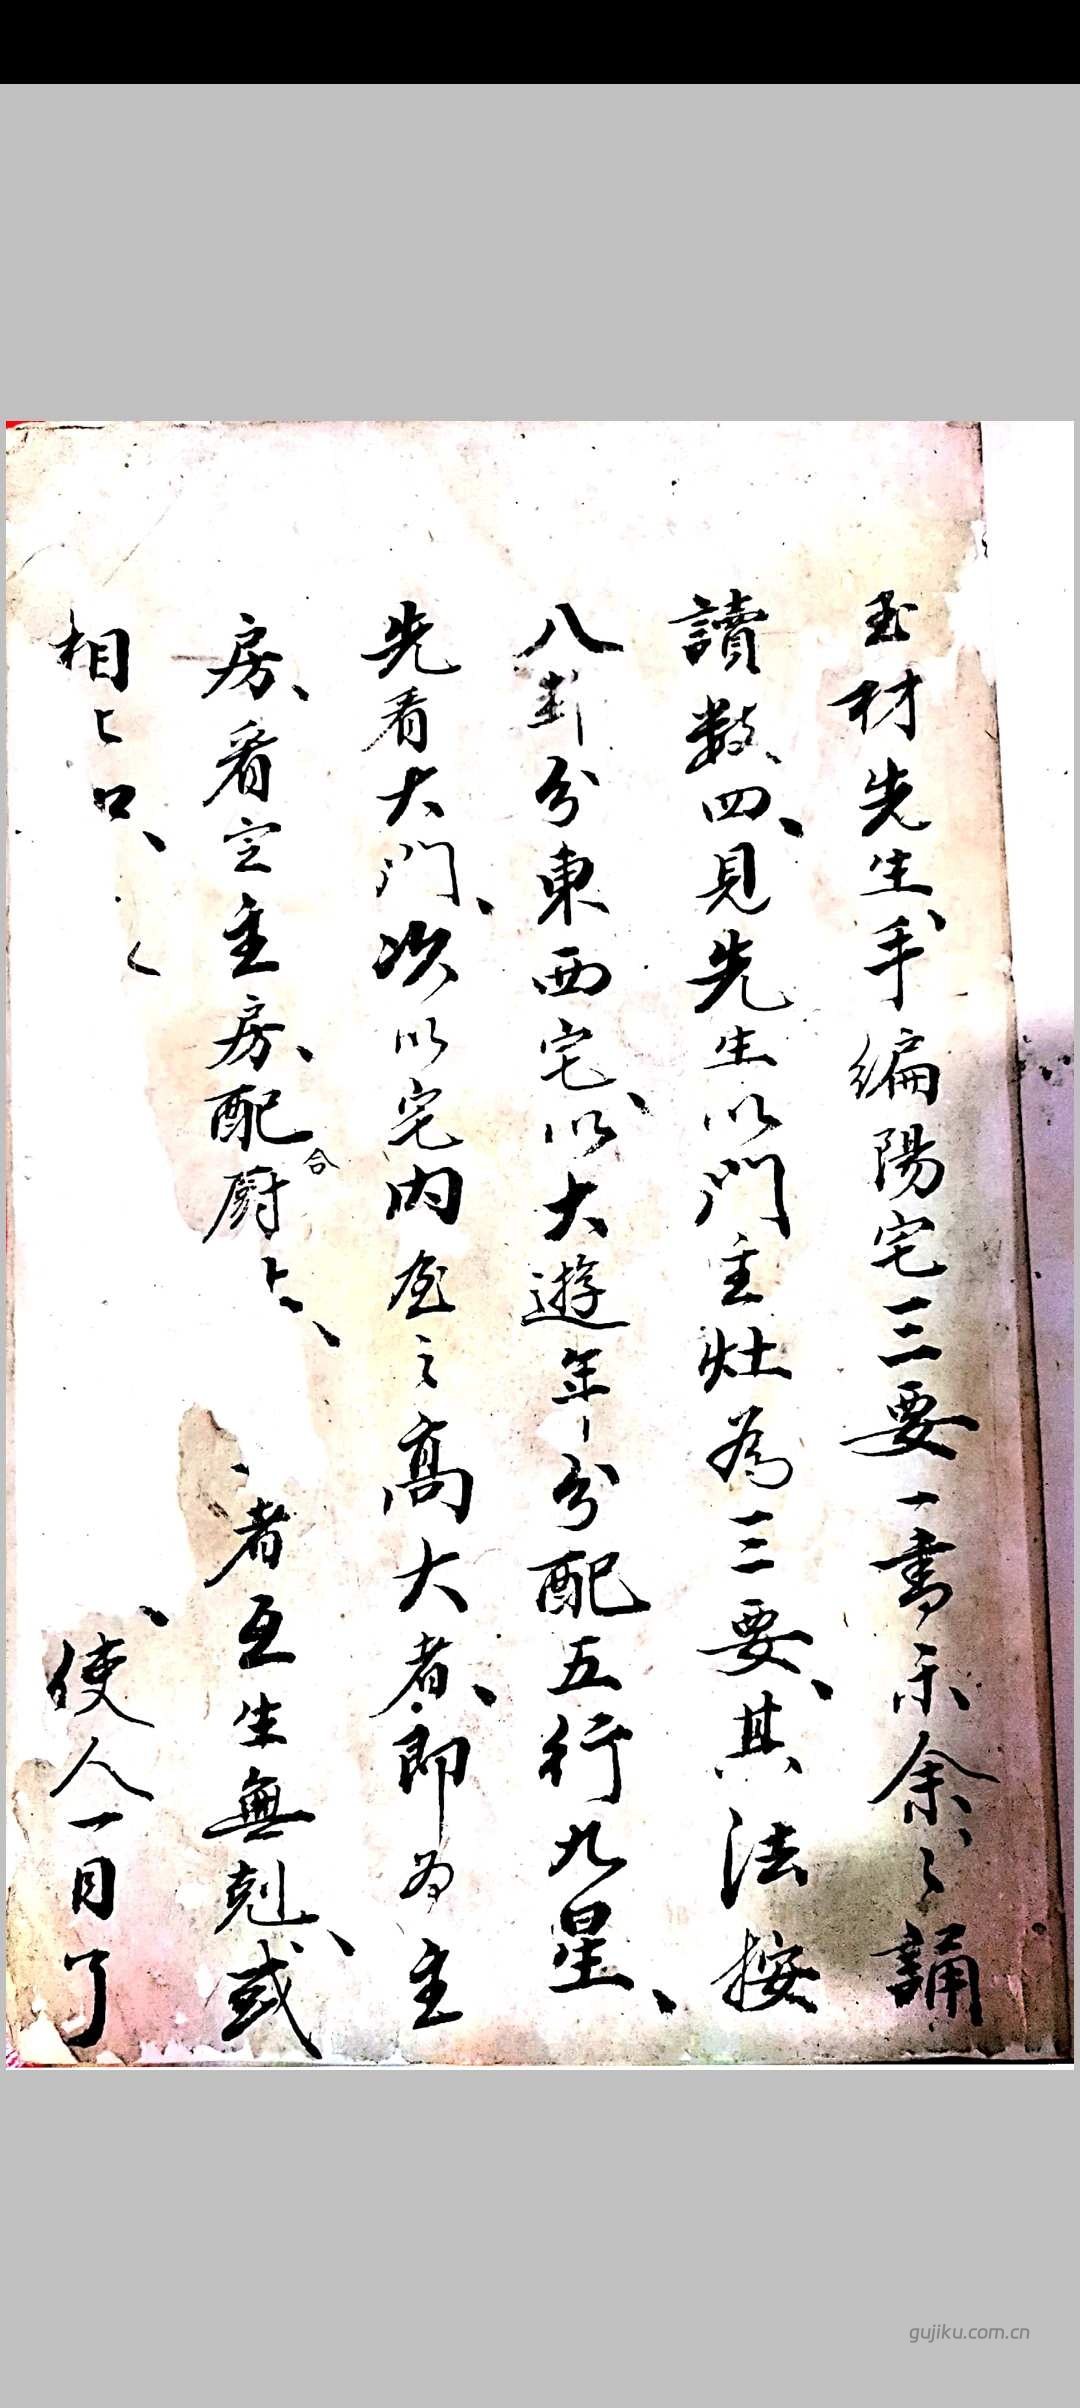 玉材先生、手編陽宅三要一書示余、々誦
讀数四、見先生以門主灶為三要、其法按
八卦分東西宅、以大遊年分配五行九星、
先看大門、次以宅内屋之高大者、即為主
房、看定主房、配合厨
者互生無剋、或
相
使人一目了
gujiku.com.cn